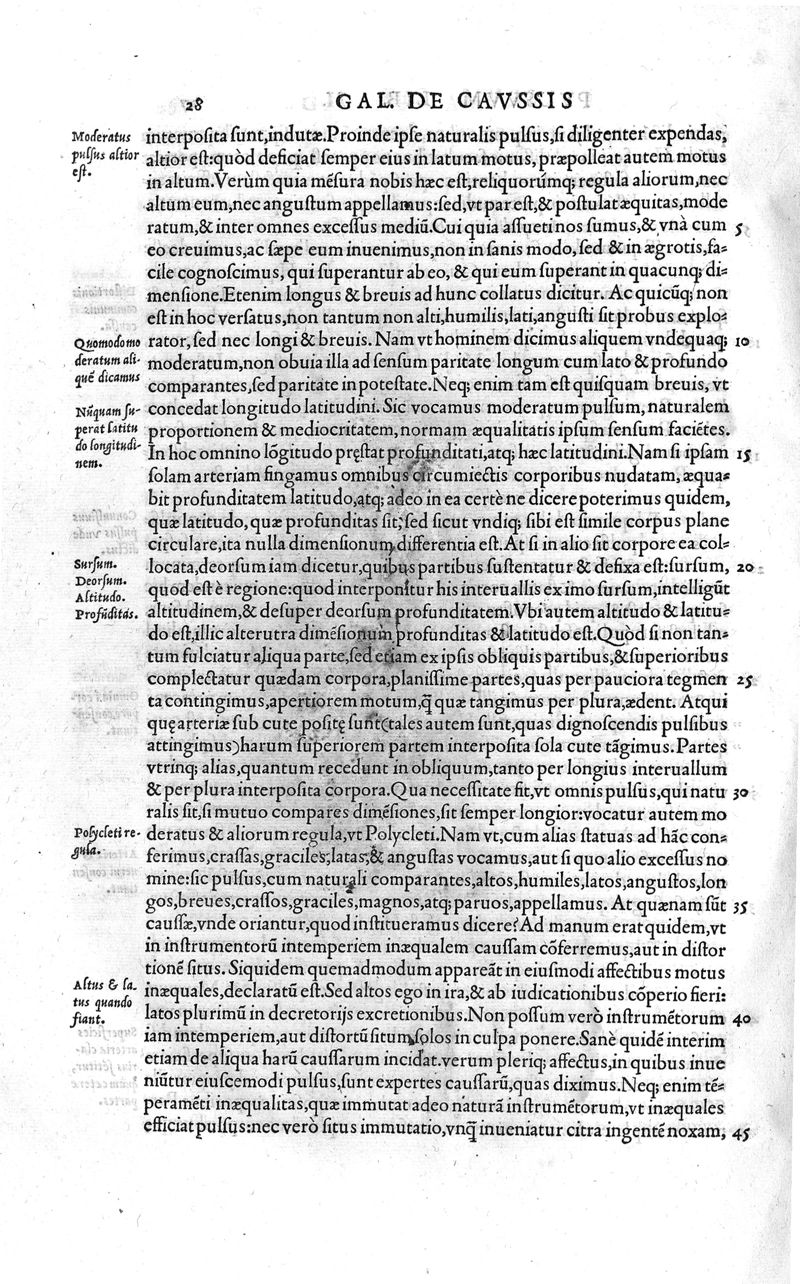 28 GAL. DE CAVSSIS
Moderatus
pulſus altior
eſt.
interpoſita ſunt,indutæ.Proinde ipſe naturalis pulſus,ſi diligenter expendas,
altior eſt:quòd deficiat ſemper eius in latum motus, præpolleat autem motus
in altum.Verùm quia mẽſura nobis hæc eſt,reliquorúmq; regula aliorum,nec
altum eum,nec anguſtum appellamus:ſed,vt par eſt,& poſtulat æquitas,mode
ratum,& inter omnes exceſſus mediũ.Cui quia aſſueti nos ſumus,& vnà cum 5
eo creuimus,ac ſæpe eum inuenimus,non in ſanis modo,ſed & in ægrotis,fa-
cile cognoſcimus, qui ſuperantur ab eo, & qui eum ſuperant in quacunq; di-
menſione.Etenim longus & breuis ad hunc collatus dicitur. Ac quicũq; non
eſt in hoc verſatus,non tantum non alti,humilis,lati,anguſti ſit probus explo-
Quomodo mo
deratum ali-
quẽ dicamus
rator,ſed nec longi & breuis. Nam vt hominem dicimus aliquem vndequaq; 10
moderatum,non obuia illa ad ſenſum paritate longum cum lato & profundo
comparantes,ſed paritate in poteſtate.Neq; enim tam eſt quiſquam breuis, vt
Nũquam ſu-
perat latitu
do longitudi-
nem.
concedat longitudo latitudini. Sic vocamus moderatum pulſum, naturalem
proportionem & mediocritatem, normam æqualitatis ipſum ſenſum faciẽtes.
In hoc omnino lõgitudo pręſtat profunditati,atq; hæc latitudini.Nam ſi ipſam 15
ſolam arteriam fingamus omnibus circumiectis corporibus nudatam, æqua-
bit profunditatem latitudo,atq; adeo in ea certè ne dicere poterimus quidem,
quæ latitudo, quæ profunditas ſit; ſed ſicut vndiq; ſibi eſt ſimile corpus plane
circulare,ita nulla dimenſionum differentia eſt.At ſi in alio ſit corpore ea col-
Surſum.
Deorſum.
Altitudo.
Profũditas.
locata,deorſum iam dicetur,quibus partibus ſuſtentatur & defixa eſt:ſurſum, 20
quod eſt è regione:quod interponitur his interuallis ex imo ſurſum,intelligũt
altitudinem,& deſuper deorſum profunditatem.Vbi autem altitudo & latitu-
do eſt,illic alterutra dimẽſionum profunditas & latitudo eſt.Quòd ſi non tan-
tum fulciatur aliqua parte,ſed etiam ex ipſis obliquis partibus,& ſuperioribus
complectatur quædam corpora,planiſſime partes,quas per pauciora tegmen 25
ta contingimus,apertiorem motum,q̃ quæ tangimus per plura,ædent. Atqui
quę arteriæ ſub cute poſitę ſunt(tales autem ſunt,quas dignoſcendis pulſibus
attingimus)harum ſuperiorem partem interpoſita ſola cute tãgimus.Partes
vtrinq; alias,quantum recedunt in obliquum,tanto per longius interuallum
& per plura interpoſita corpora.Qua neceſſitate fit,vt omnis pulſus,qui natu 30
ralis ſit,ſi mutuo compares dimẽſiones,ſit ſemper longior:vocatur autem mo
Polycleti re-
gula.
deratus & aliorum regula,vt Polycleti.Nam vt,cum alias ſtatuas ad hãc con-
ferimus,craſſas,graciles,latas,& anguſtas vocamus,aut ſi quo alio exceſſus no
mine:ſic pulſus,cum naturali comparantes,altos,humiles,latos,anguſtos,lon
gos,breues,craſſos,graciles,magnos,atq; paruos,appellamus. At quænam ſũt 35
cauſſæ,vnde oriantur,quod inſtitueramus dicere? Ad manum erat quidem,vt
in inſtrumentorũ intemperiem inæqualem cauſſam cõferremus,aut in diſtor
tionẽ ſitus. Siquidem quemadmodum appareãt in eiuſmodi affectibus motus
Altus & la-
tus quando
fiant.
inæquales,declaratũ eſt.Sed altos ego in ira,& ab iudicationibus cõperio fieri:
latos plurimũ in decretorijs excretionibus.Non poſſum verò inſtrumẽtorum 40
iam intemperiem,aut diſtortũ ſitum,ſolos in culpa ponere.Sanè quidẽ interim
etiam de aliqua harũ cauſſarum incidat.verum pleriq; affectus,in quibus inue
niũtur eiuſcemodi pulſus,ſunt expertes cauſſarũ,quas diximus.Neq; enim tẽ-
peramẽti inæqualitas,quæ immutat adeo naturã inſtrumẽtorum,vt inæquales
efficiat pulſus:nec verò ſitus immutatio,vnq̃ inueniatur citra ingentẽ noxam, 45